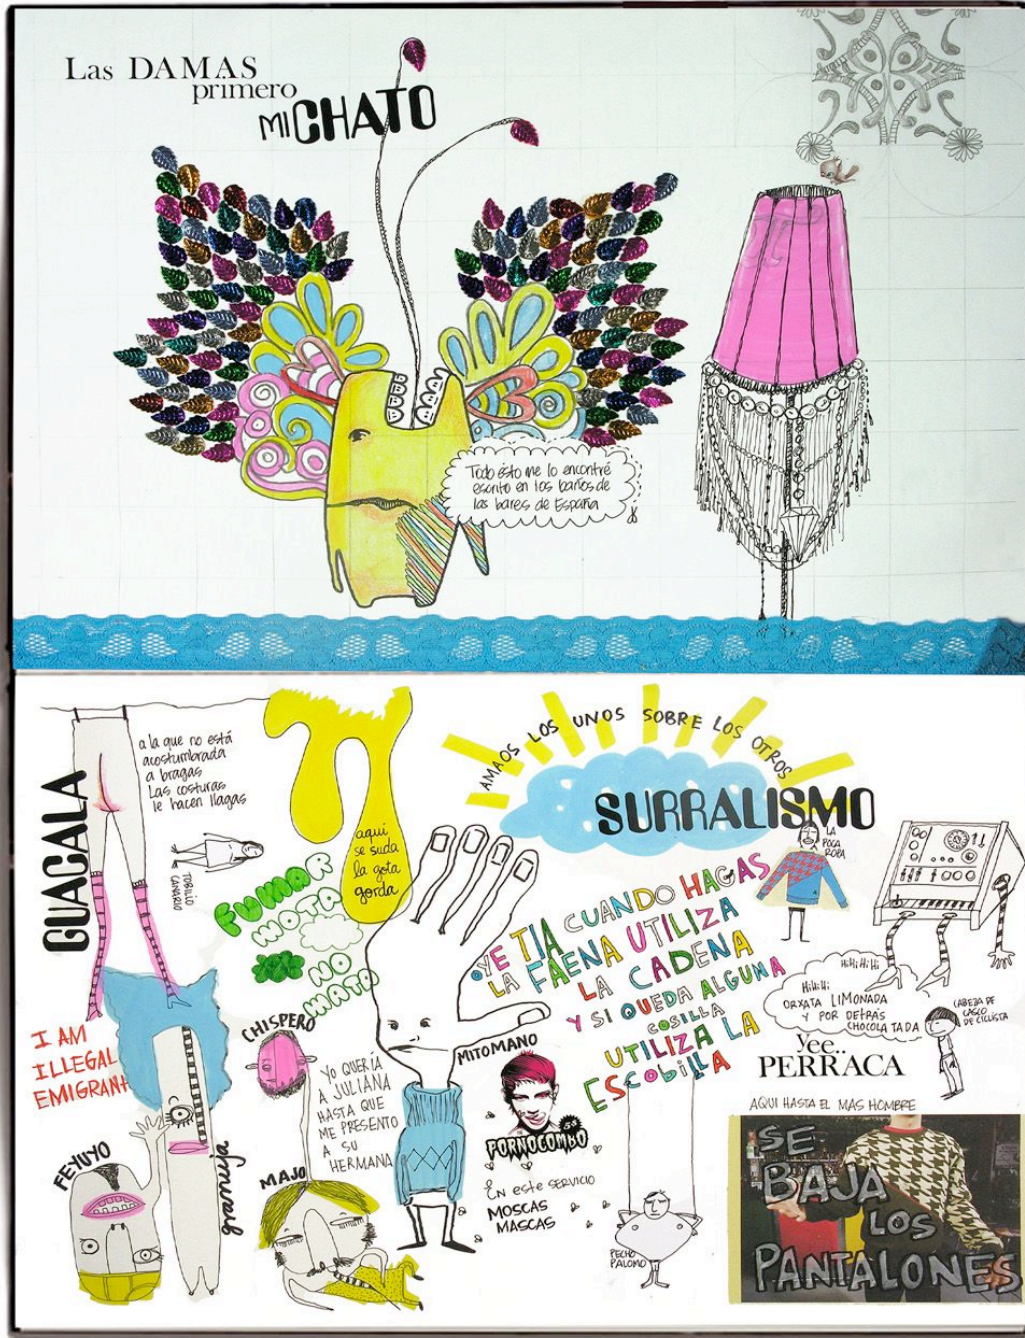 Las DAMAS
primero
mi CHATO
Todo ésto me lo encontré
escrito en los baños de
las bares de España
GUACALA
a la que no está
acostumbrada
a bragas
Las costuras
le hacen llagas
TOBILLO
CANARIO
aqui
se suda
la gota
gorda
AMAOS LOS UNOS SOBRE LOS OTROS
SURRALISMO
FUMAR
MOTA
NO
MATA
OYE TIA CUANDO HAGAS
LA FAENA UTILIZA
LA CADENA
Y SI QUEDA ALGUNA
COSILLA
UTILIZA LA
ESCOBILLA
LA
POCA
ROPA
HiHiHiHi
HiHiHi
ORXATA LIMONADA
Y POR DETRÁS
CHOCOLATADA
CABEZA DE
CASCO DE
CICLISTA
Yee..
PERRACA
I AM
ILLEGAL
EMIGRANT
CHISPERO
YO QUERÍA
A JULIANA
HASTA QUE
ME PRESENTO
A SU
HERMANA
MITOMANO
PORNOCOMBO
En este servicio
MOSCAS
MASCAS
FEYUYO
granuja
MAJO
PECHO
PALOMO
AQUI HASTA EL MAS HOMBRE
SE
BAJA
LOS
PANTALONES